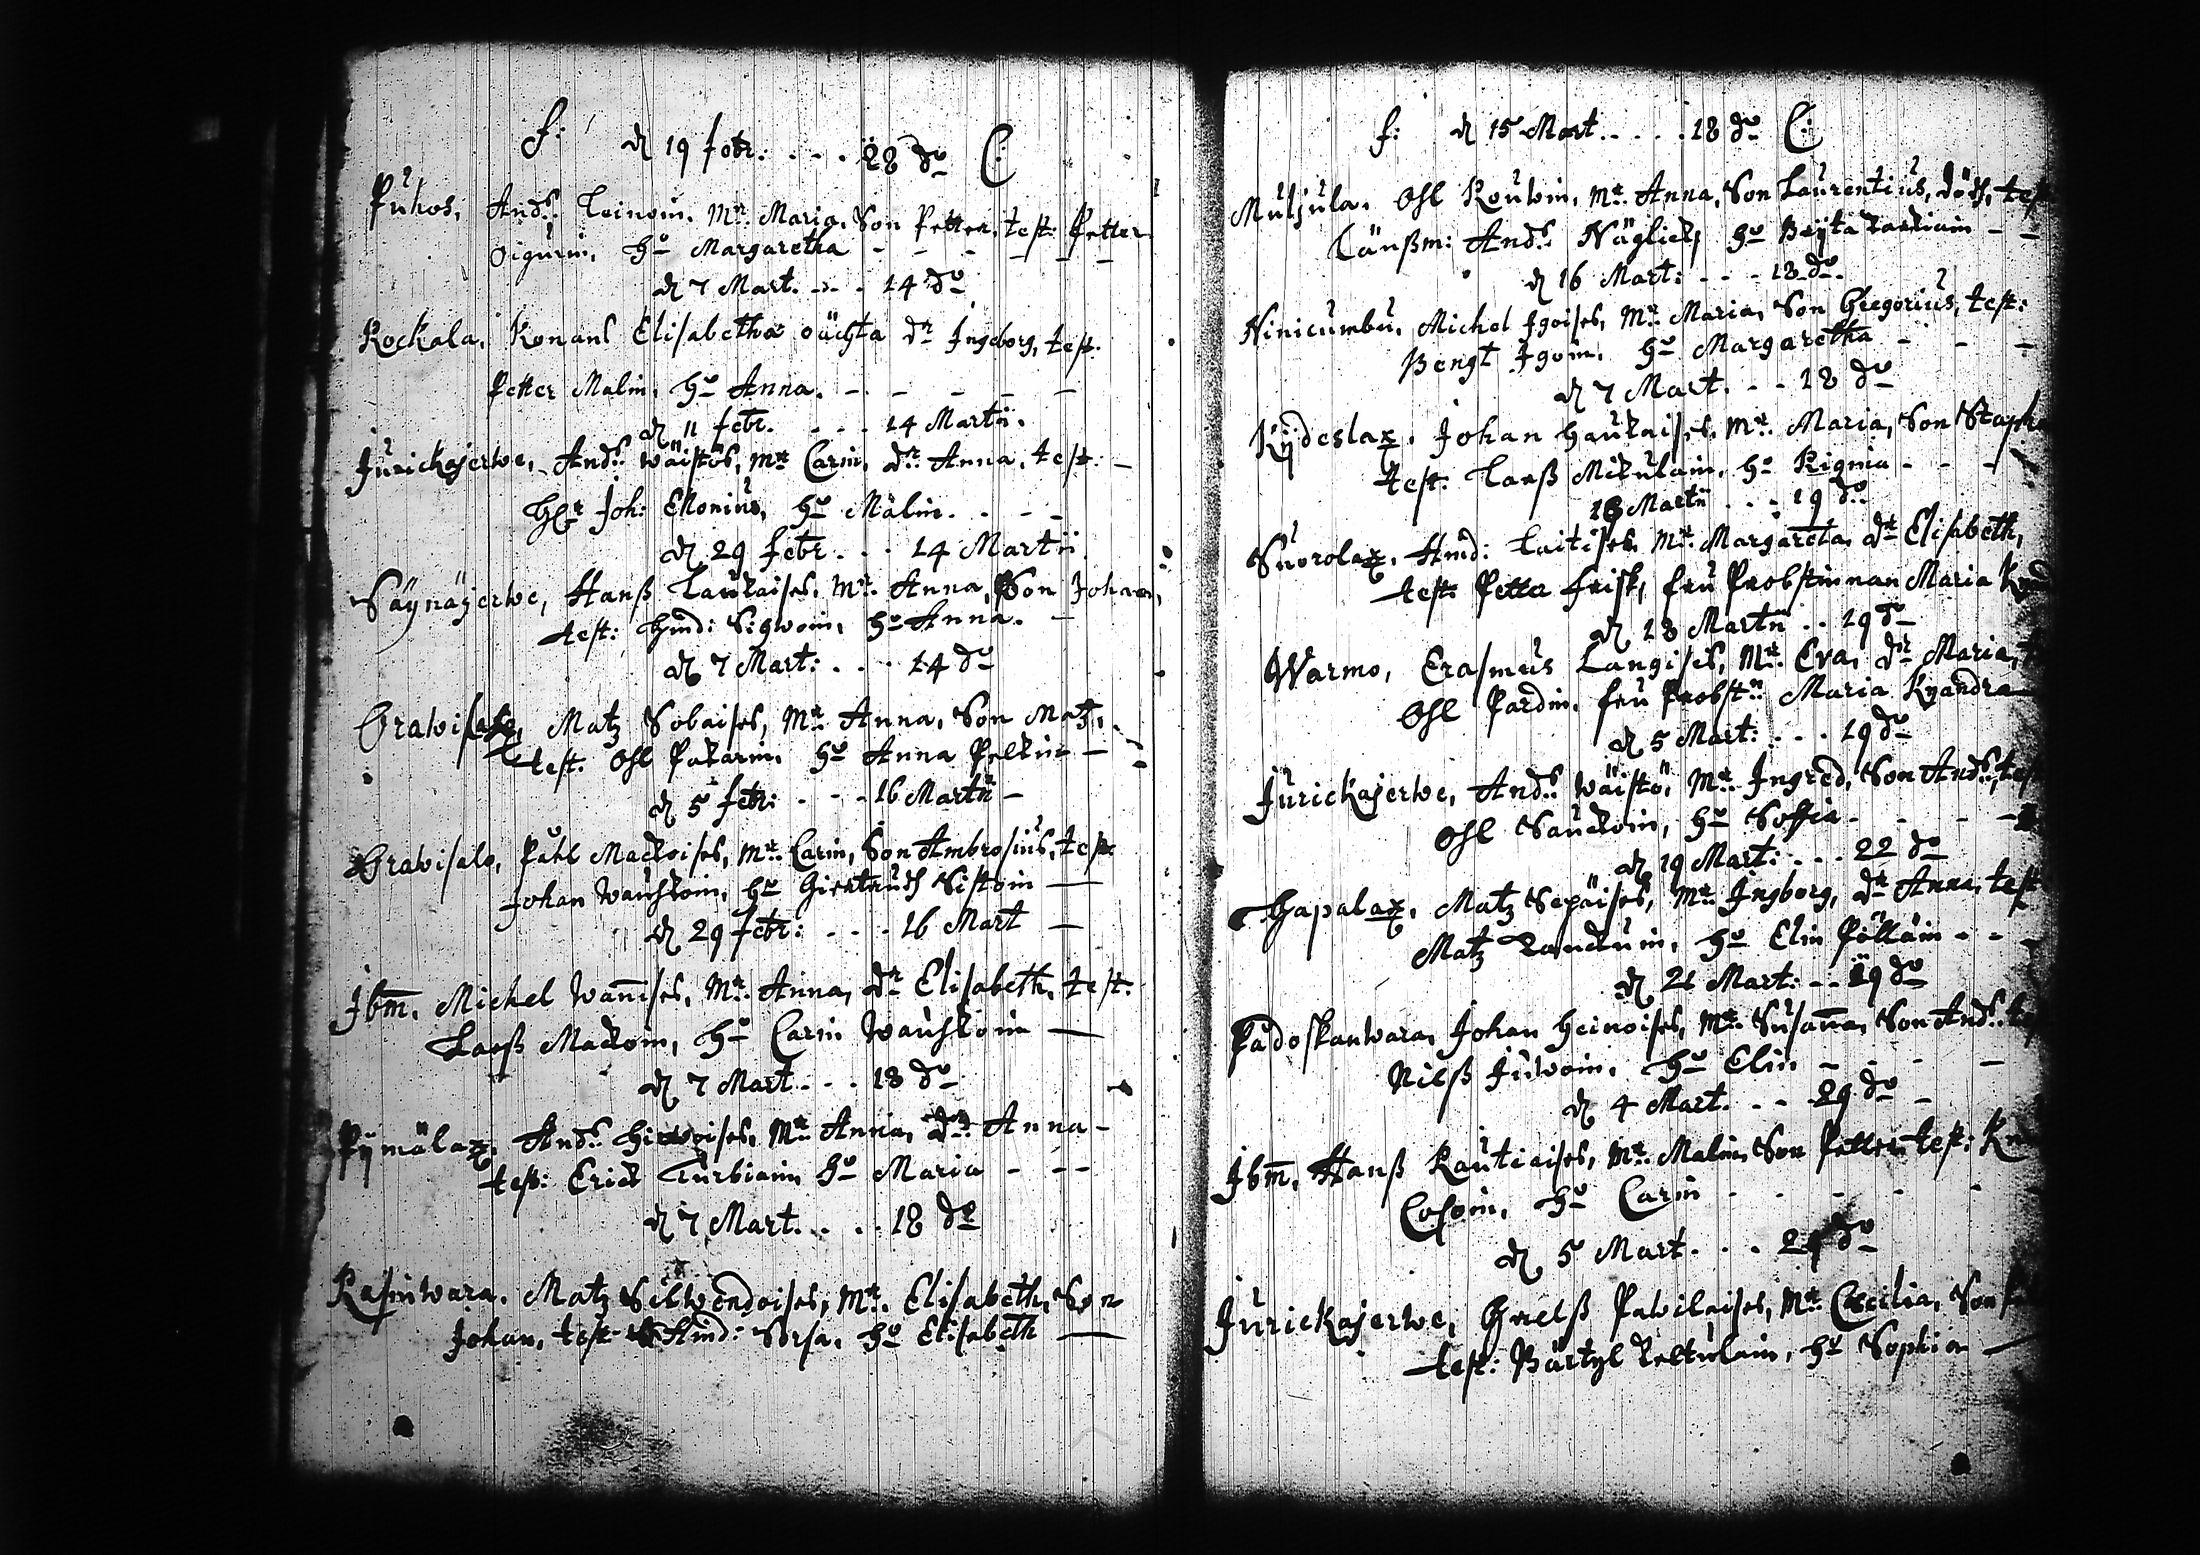 f: d 19 febr: . . . 28 do C:
Puhos, Ands. Leinoin. Mr. Maria, Son Petter, test: Petter
Oigurin, ho Margaretha - - - - -
d 7 Mart. - - - 14 do
Rockala, Konans Elisabetha oächta dr Ingeborg, test:
Petter Malin, ho Anna. - - - - -
d 11 febr. . . . 14 Martii.
Jurickajerwe, Ands. Wäistös, Mr Carin, dr. Anna, test: -
Hr Joh: Monius, ho Malin. - - -
d 29 febr . . . 14 Martii
Säynäjerwe, Hanß Laukaises, Mr. Anna, Son Johan,
test: Hind: Sigwoin, ho Anna. -
d 7 Mart: . . . 14 do
Orawisalo, Matz Sobaises, Mr. Anna, Son Matz,
test. Ohl Pakarin, ho Anna Pelkin -
d 5 febr: - - - 16 Martii -
Orawisalo, Påhl Mackoises, Mr. Carin, Son Ambrosius, test:
Johan Wauhkoin, ho Giertrudh Sistoin -
d 29 febr: - - - 16 Mart -
Ibm. Michel Wanises, Mr. Anna, dr Elisabeth, test:
Larß Mackoin, ho Carin Wauhkoin -
d 7 Mart. - - . 18 do
Pymälax, Ands. Hirwoises, Mr. Anna, dr. Anna -
test: Erick Turbiain ho Maria - - -
d 7 Mart. . . . 18 do
Rasiniwara. Matz Silwendoises, Mr. Elisabeth, Son
Johan, test Hind: Sorsa, ho Elisabeth -
f: d 15 Mart. . . . 18 do C:
Muljula. Ohl Rouwin, Mr. Anna, Son Laurentius, dödh, test
Länßm: Ands. Näglick, ho Beyta - -
d 16 Mart: - - - 18 do.
Ninicumbu, Michel Igoises, Mr. Maria, Son Gregorius, test:
Bengt Igoin, ho Margaretha - - -
d 7 Mart. - - 18 do
Kydeslax. Johan Haukaises, Mr. Maria, Son Staph
test: Larß Mikulain, ho Rignia - - -
18 Martii . . . 19 do.
Suorolax, Hind: Laitises, Mr. Margareta, dr Elisabeth,
test: Petter Frisk, fru Probstinnan Maria
d 18 Martii . . 19 do
Warmo, Erasmus Langises, Mr. Eva, dr Maria,
Ohl Pardin, fru Probstn Maria Kyandra
d 5 Mart: . . . 19 do
Jurickajerwe, Ands. Wäistö, Mr. Ingred, Son Ands., test
Ohl Sauckoin, ho Soffia - - - -
d 19 Mart: . . . 22 do
Hapalax. Matz Sepäises, Mr Ingborg, dr Anna, test
Matz, ho Elin Pölläin - - -
d 21 Mart: - - 29 do
Padoskanwara, Johan Heinoises, Mr. Susana, Son Ands.
Nilß Juwoin, ho Elin - - - -
d 4 Mart. - - 29 do -
Ibm. Hanß Rautiaises, Mr. Malin, Son Petter test:
Cosoin, ho Carin - - - - -
d 5 Mart. . . 29 do
Jurickajerwe, Grelß Pawilaises, Mr Cecilia, Son
test: Bärtyl, ho Sophia -